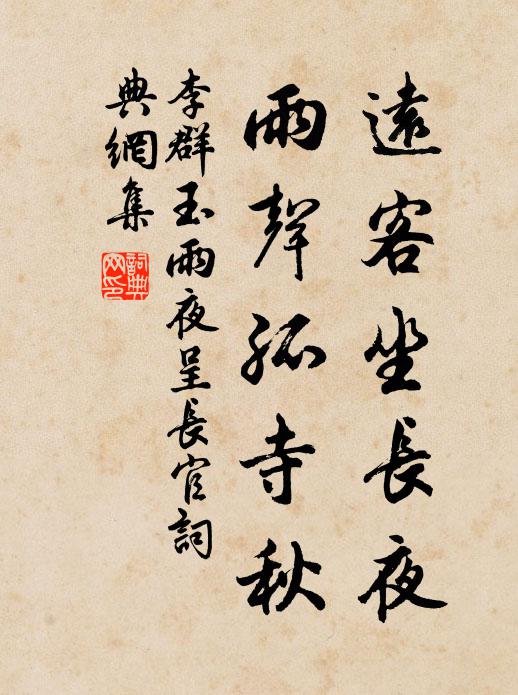 遠客坐長夜
雨聲孤寺秋
李群玉雨夜呈長官詞
典網集
詞典網印